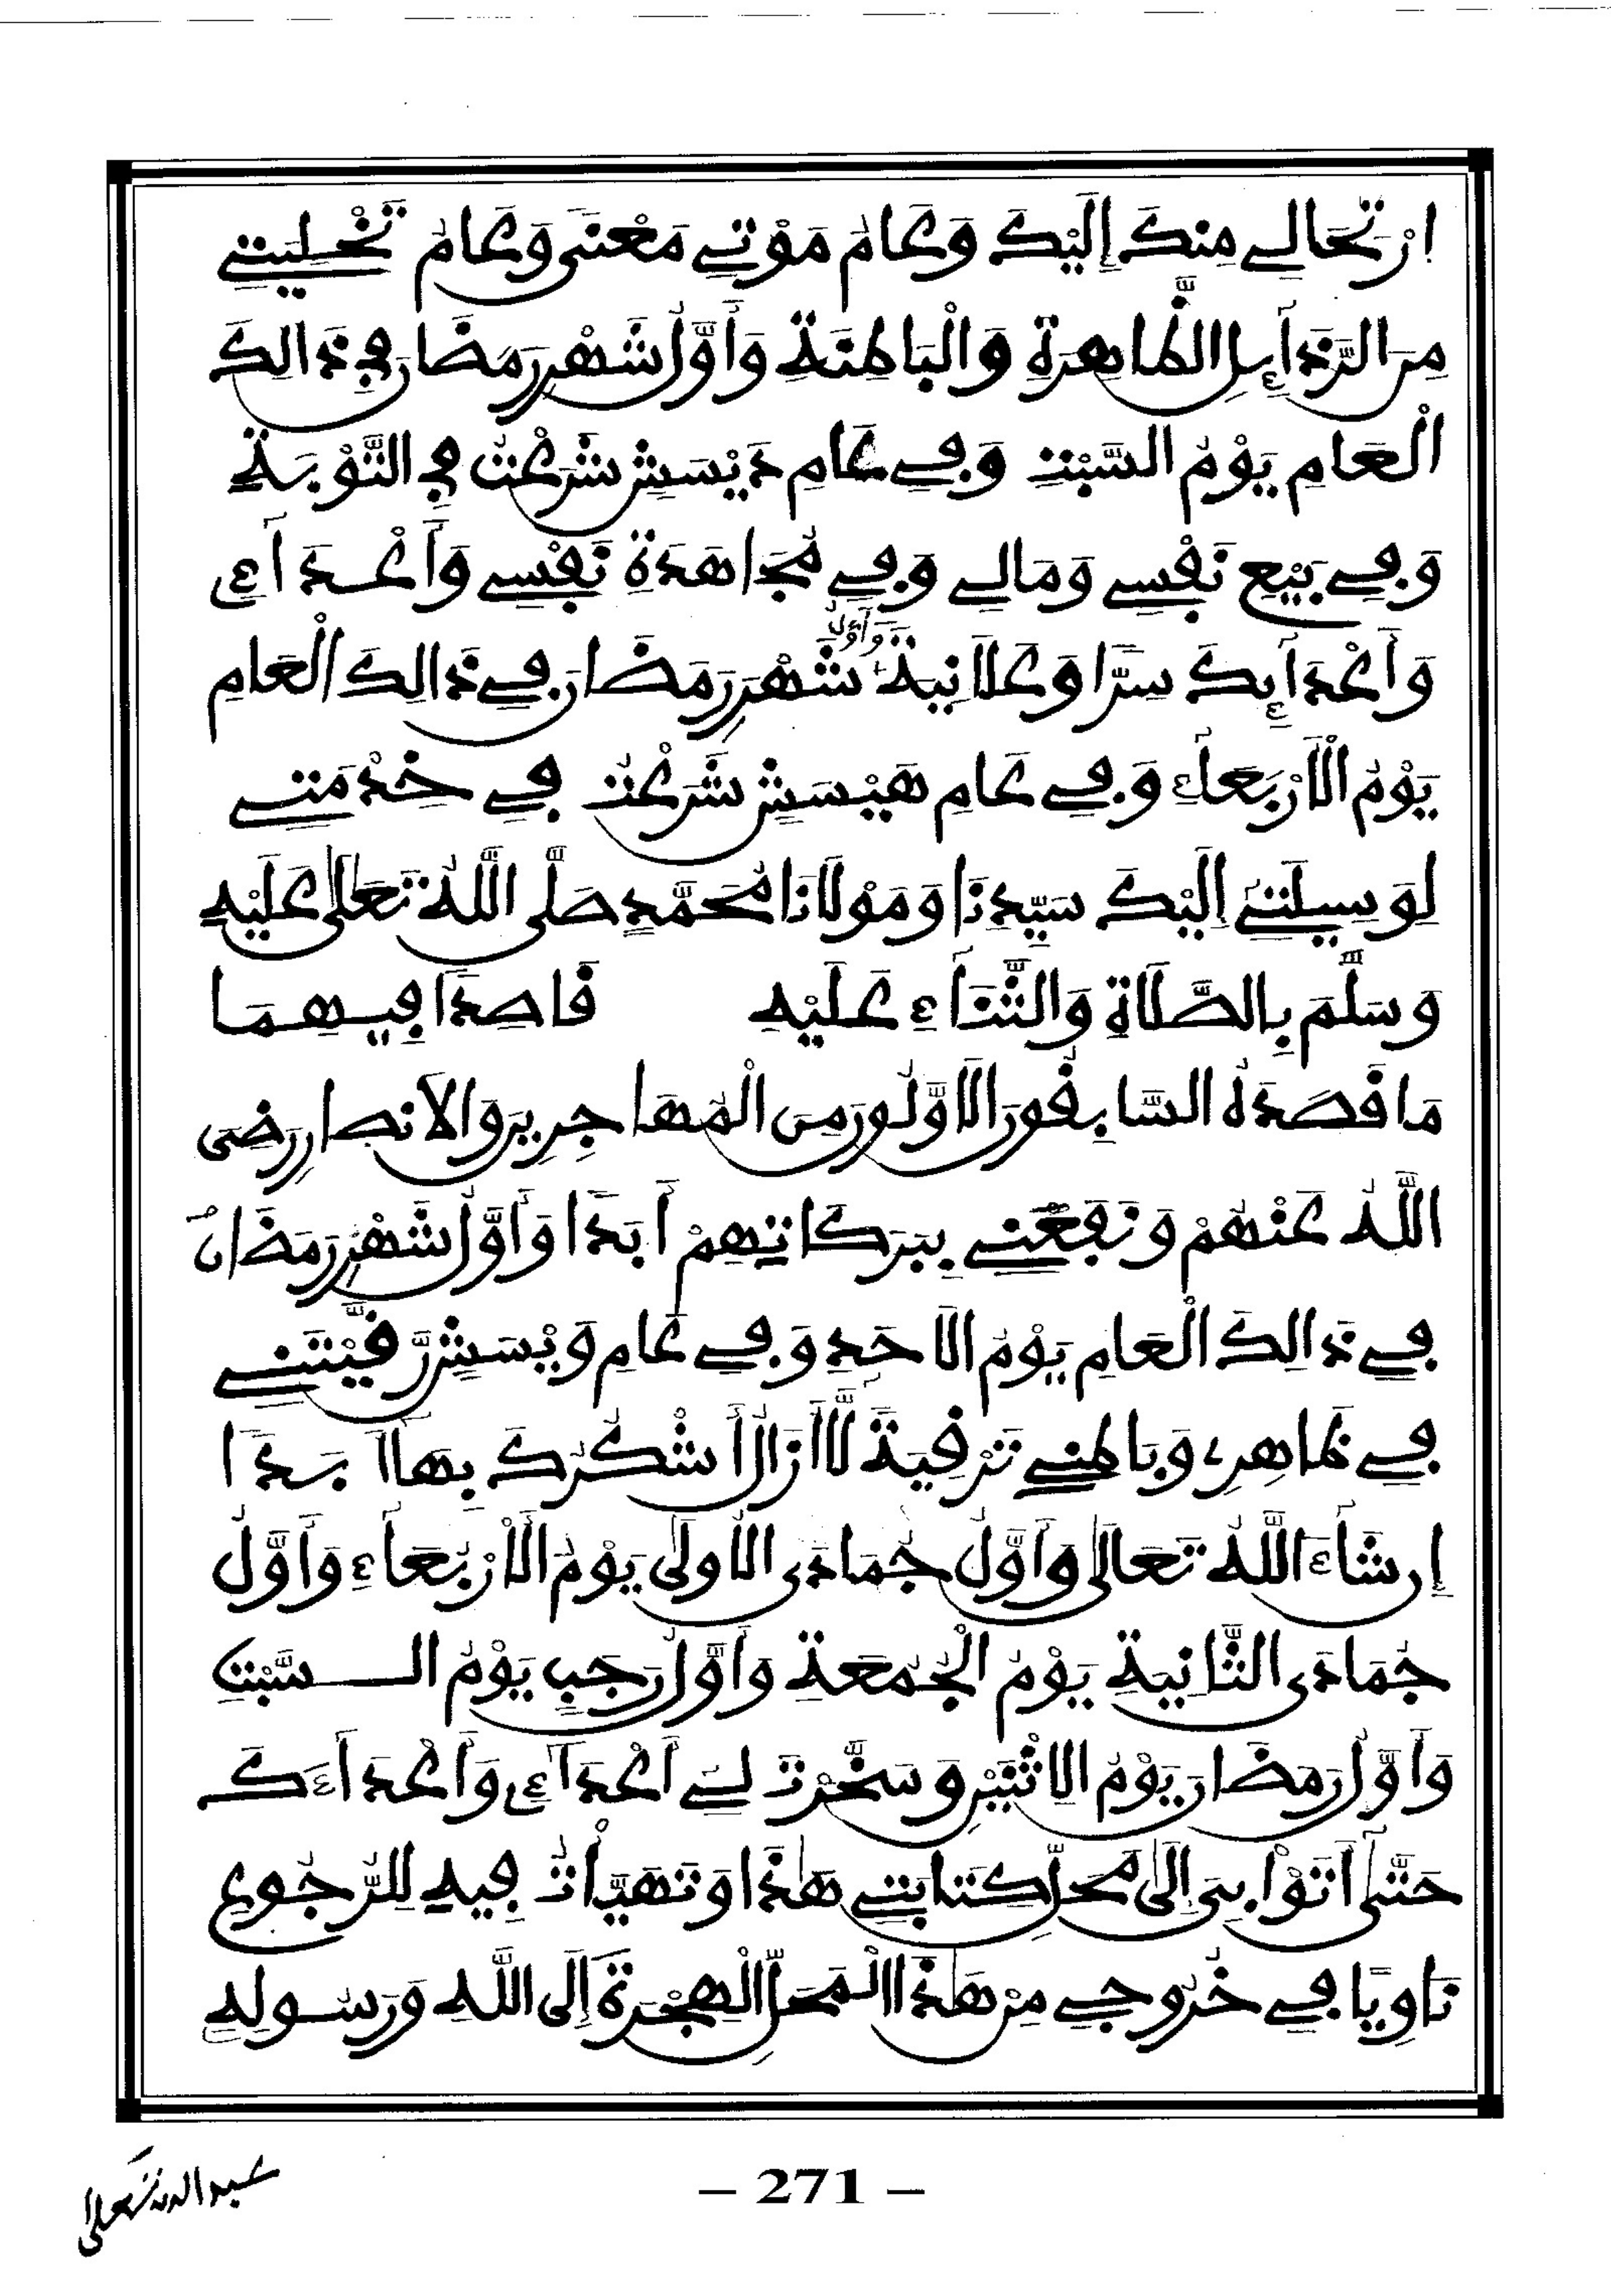 ارْتِحَالِے مِنكَ إِلَيْكَ وَعَامَ مَوْتِے مَعْنَى وَعَامَ تَخْلِيَتِے
مِنَ الرَّذَآئِلِ الظَّاهِرَةِ وَالْبَاطِنَةِ وَأَوَّلُ شَهْرِ رَمَضَانَ فِى ذَالِكَ
الْعَامِ يَوْمُ السَّبْتِ وَفِے عَامِ دَيْسَشٍ شَرَعْتُ فِى التَّوْبَةِ
وَفِے بَيْعِ نَفْسِے وَمَالِے وَفِے مُجَاهَدَةِ نَفْسِے وَأَعْدَآءِى
وَأَعْدَآئِكَ سِرًّا وَعَلَانِيَةً وَأَوَّلُ شَهْرِ رَمَضَانَ فِے ذَالِكَ الْعَامِ
يَوْمُ الْأَرْبَعَآءِ وَفِے عَامِ هَيْسَشٍ شَرَعْتُ فِے خِدْمَتِے
لِوَسِيلَتِے إِلَيْكَ سَيِّدِنَا وَمَوْلَانَا مُحَمَّدٍ صَلَّى اللَّهُ تَعَالَى عَلَيْهِ
وَسَلَّمَ بِالصَّلَاةِ وَالثَّنَآءِ عَلَيْهِ قَاصِدًا فِيهِمَا
مَا قَصَدَهُ السَّابِقُونَ الْأَوَّلُونَ مِنَ الْمُهَاجِرِينَ وَالْأَنصَارِ رَضِىَ
اللَّهُ عَنْهُمْ وَنَفَعَنِے بِبَرَكَاتِهِمْ أَبَدًا وَأَوَّلُ شَهْرِ رَمَضَانَ
فِے ذَالِكَ الْعَامِ يَوْمُ الْأَحَدِ وَفِے عَامِ وَيْسَشٍ رَّقَّيْتَنِے
فِے ظَاهِرِى وَبَاطِنِے تَرْقِيَةً لَّا أَزَالُ أَشْكُرُكَ بِهَآ أَبَدًا
إِن شَآءَ اللَّهُ تَعَالَى وَأَوَّلُ جُمَادَى الْأُولَى يَوْمُ الْأَرْبَعَآءِ وَأَوَّلُ
جُمَادَى الثَّانِيَةِ يَوْمُ الْجُمُعَةِ وَأَوَّلُ رَجَبٍ يَوْمُ السَّبْتِ
وَأَوَّلُ رَمَضَانَ يَوْمُ الِاثْنَيْنِ وَسَخَّرْتَ لِے أَعْدَآءِى وَأَعْدَآءَكَ
حَتَّى أَتَوْا بِى إِلَى مَحَلِّ كِتَابَتِے هَذَا وَتَهَيَّأْتُ فِيهِ لِلرُّجُوعِ
نَاوِيًا فِے خُرُوجِے مِنْ هَذَا الْمَحَلِّ الْهِجْرَةَ إِلَى اللَّهِ وَرَسُولِهِ
– 271 –